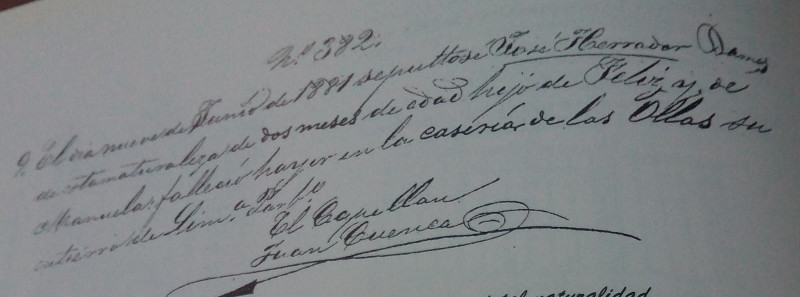 N.º 382.
9. El dia nueve de Junio de 1881 sepultose José Herrador Damas
de esta naturaleza de dos meses de edad hijo de Feliz, y de
Manuela: falleció hayer en la caseria, de las Ollas su
entierro de Lim.ª
El Capellan
Juan Cuenca